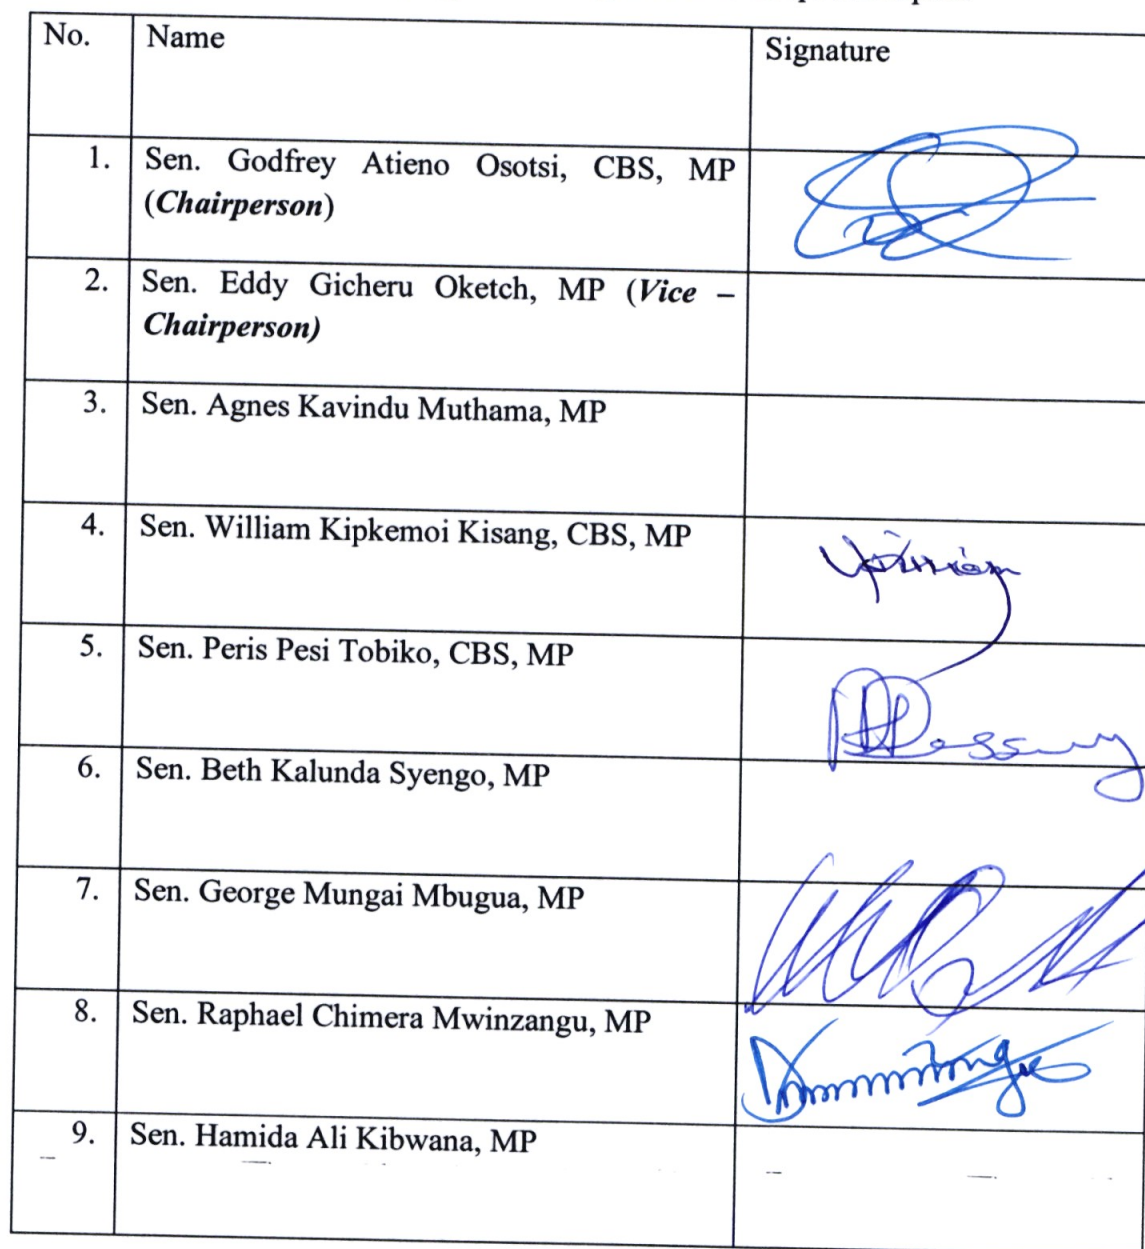 No. Name Signature
1. Sen. Godfrey Atieno Osotsi, CBS, MP
(Chairperson)
2. Sen. Eddy Gicheru Oketch, MP (Vice –
Chairperson)
3. Sen. Agnes Kavindu Muthama, MP
4. Sen. William Kipkemoi Kisang, CBS, MP
5. Sen. Peris Pesi Tobiko, CBS, MP
6. Sen. Beth Kalunda Syengo, MP
7. Sen. George Mungai Mbugua, MP
8. Sen. Raphael Chimera Mwinzangu, MP
9. Sen. Hamida Ali Kibwana, MP